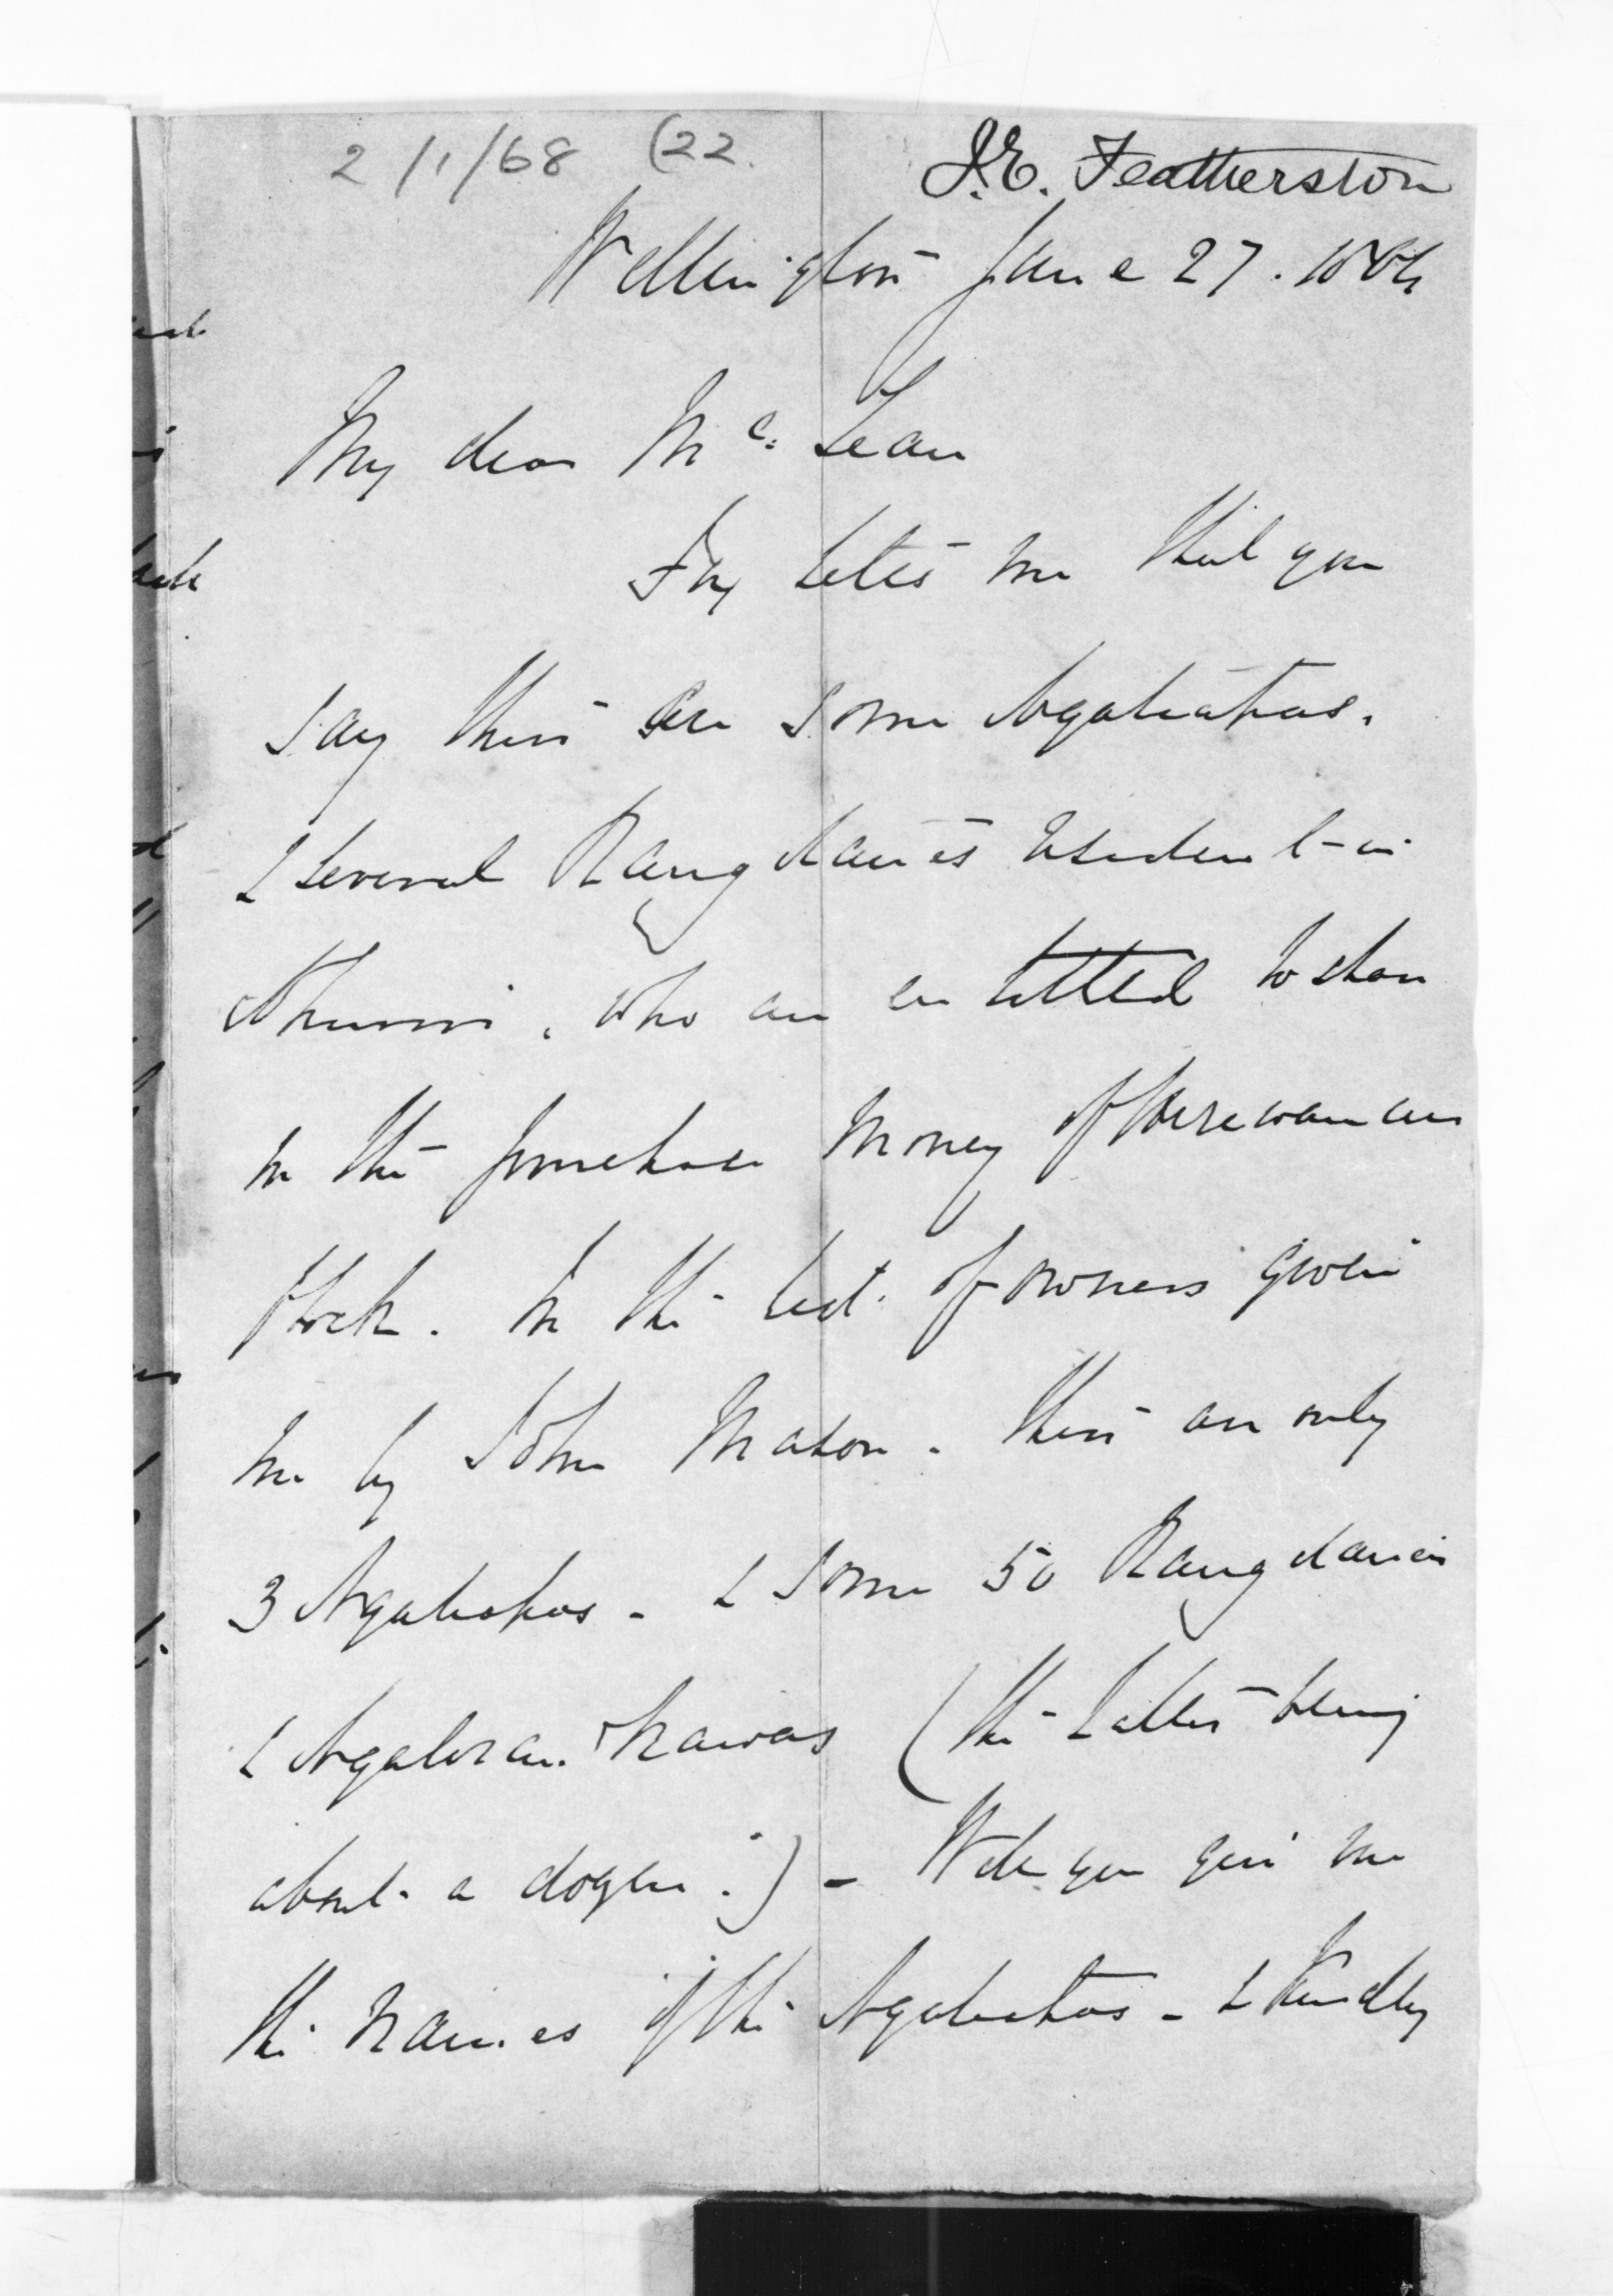 2/1/68 (22.
I.E. Featherston
Wellington June 27. 186
My dear Mc. Lean
Fox tells me that you
say there are some Ngatiapas.
& several Rangitanes resident in
Ahuriri, who are entitled to share
in the purchase money of the Manawatu
Block. In the list of owners given
me by John Mason. there are only
3 Ngatiapas - & some 50 Rangitanes
& Ngatiraukawas (the latter being
about a dozen.) - Will you give me
the names of the Ngatiapas - & kindly